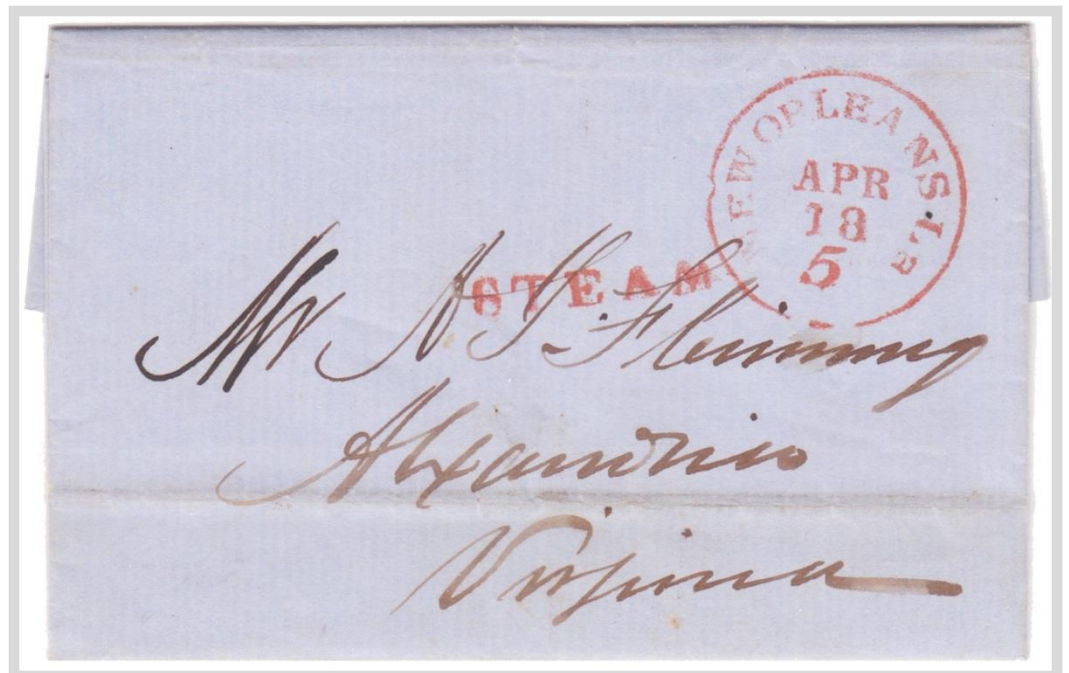 NEW ORLEANS La
APR
18
5
STEAM
Mr A. S. Flemming
Alexandria
Virginia